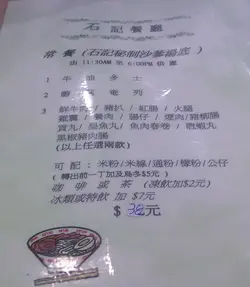 石記餐廳
常餐(石記秘制沙爹湯底)
由 11:30AM 至 6:00PM 供應
1 牛油多士
2 奄列
3 鮮牛肉/豬扒/紅腸/火腿
餐肉/腸仔/煙肉/豬頸腸
貢丸/墨魚丸/魚肉春卷/
黑椒豬肉腸
(以上任選兩款)
可配:米粉/米線/通粉/檬粉/公仔
(轉出前一丁加及烏冬$5元)
咖啡或茶(凍飲加$2元)
冰類或特飲 加 $7元
$ 元